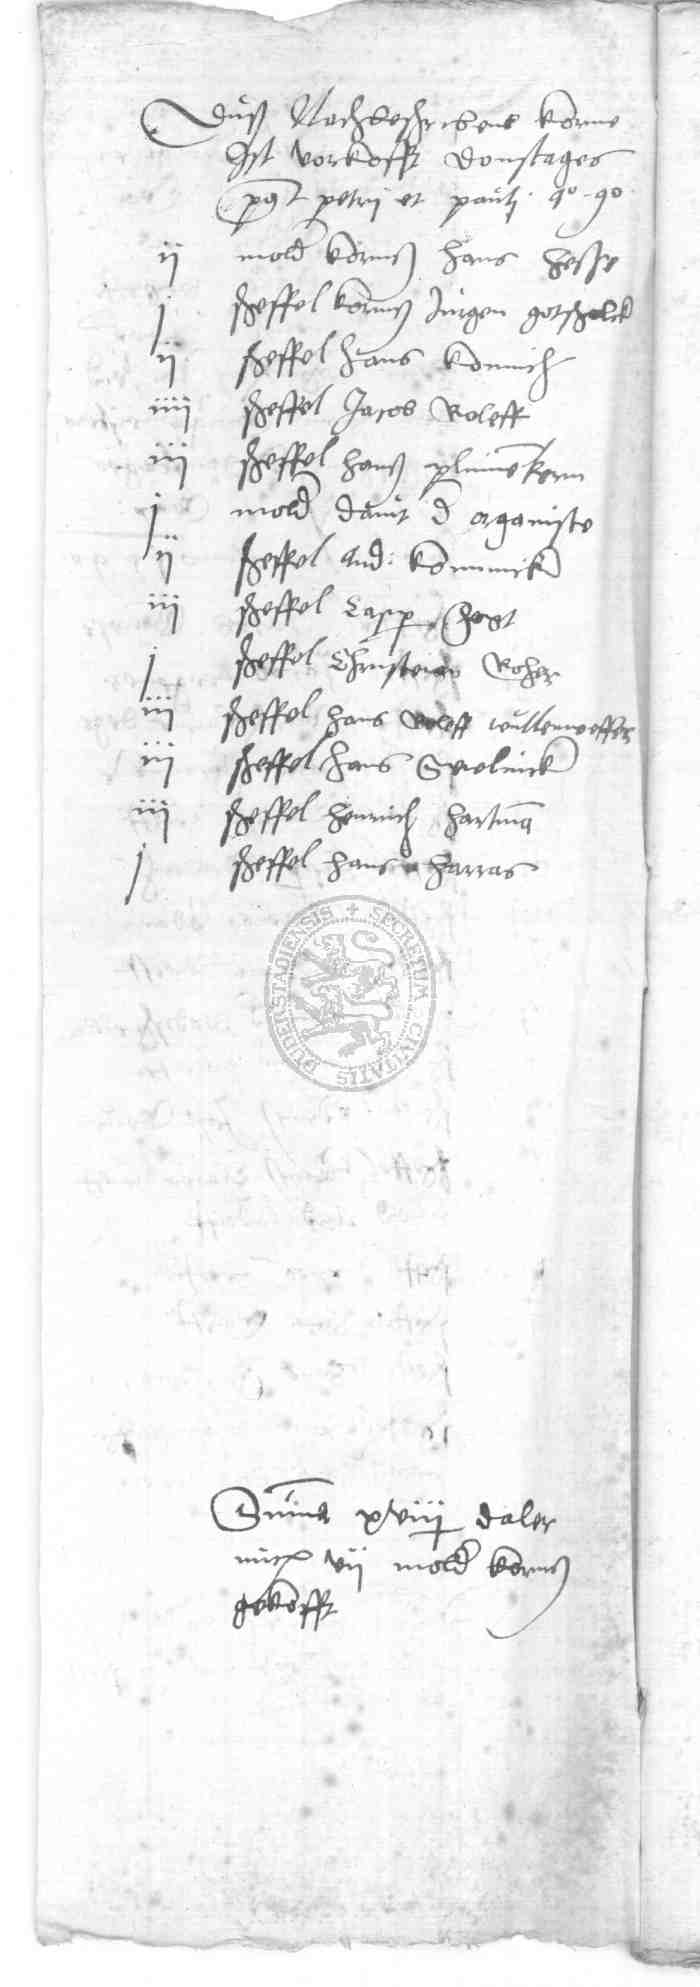 Duß Nachbeschribene korne
Ist vorkofft Donstages
post petri et pauli · ao · 90 ·
ij mold kornß hans hesse
j scheffel kornß Jurgen gotschalck
ij scheffel hans konnich
iiij scheffel Jacob Roleff
iij scheffel hanß plumekorn
j mold Davit d organiste
ij scheffel And: konninck
iij scheffel Casp
j scheffel Christian Roher
iij scheffel hans Roleff wullenweffer
iij scheffel hans
iij scheffel henrich hartma
j scheffel hans harras
SECRETUM CIVITATIS DUDERSTADIENSIS
Suma xviij daler
vij mold kornß
gekofft